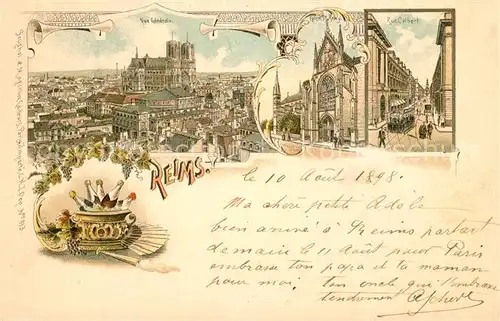 Vue Générale.
Rue Colbert
REIMS.
le 10 Août 1898.
Ma chère petite Adèle
bien arrivé à Reims partant
demain le 11 août pour Paris
embrasse ton papa et ta maman
pour moi, ton oncle qui t'embrasse
tendrement